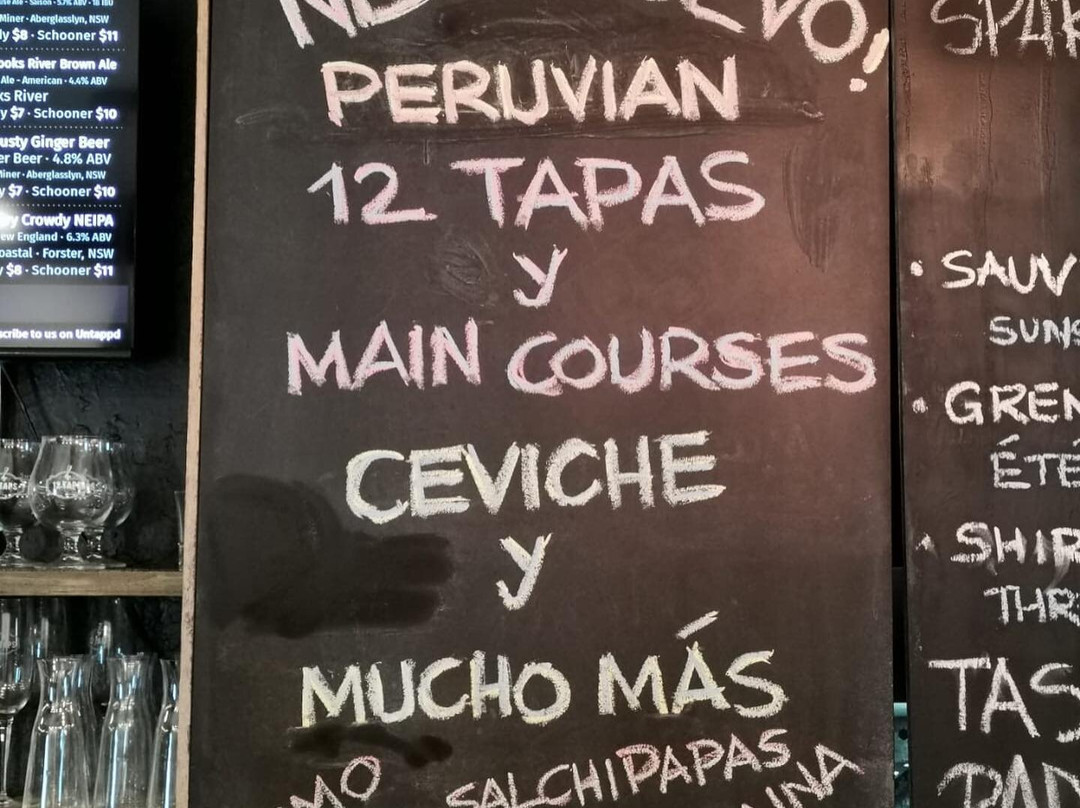 Miner · Aberglasslyn, NSW
$8 · Schooner $11
ooks River Brown Ale
Ale - American · 4.4% ABV
ks River
y $7 · Schooner $10
usty Ginger Beer
er Beer · 4.8% ABV
Miner · Aberglasslyn, NSW
y $7 · Schooner $10
y Crowdy NEIPA
ew England · 6.3% ABV
oastal · Forster, NSW
y $8 · Schooner $11
scribe to us on Untappd
PERUVIAN
12 TAPAS
y
MAIN COURSES
CEVICHE
y
MUCHO MÁS
MO SALCHIPAPAS
SPAR
• SAUV
SUNS
• GREN
ÉTÉ
• SHIR
THR
TAS